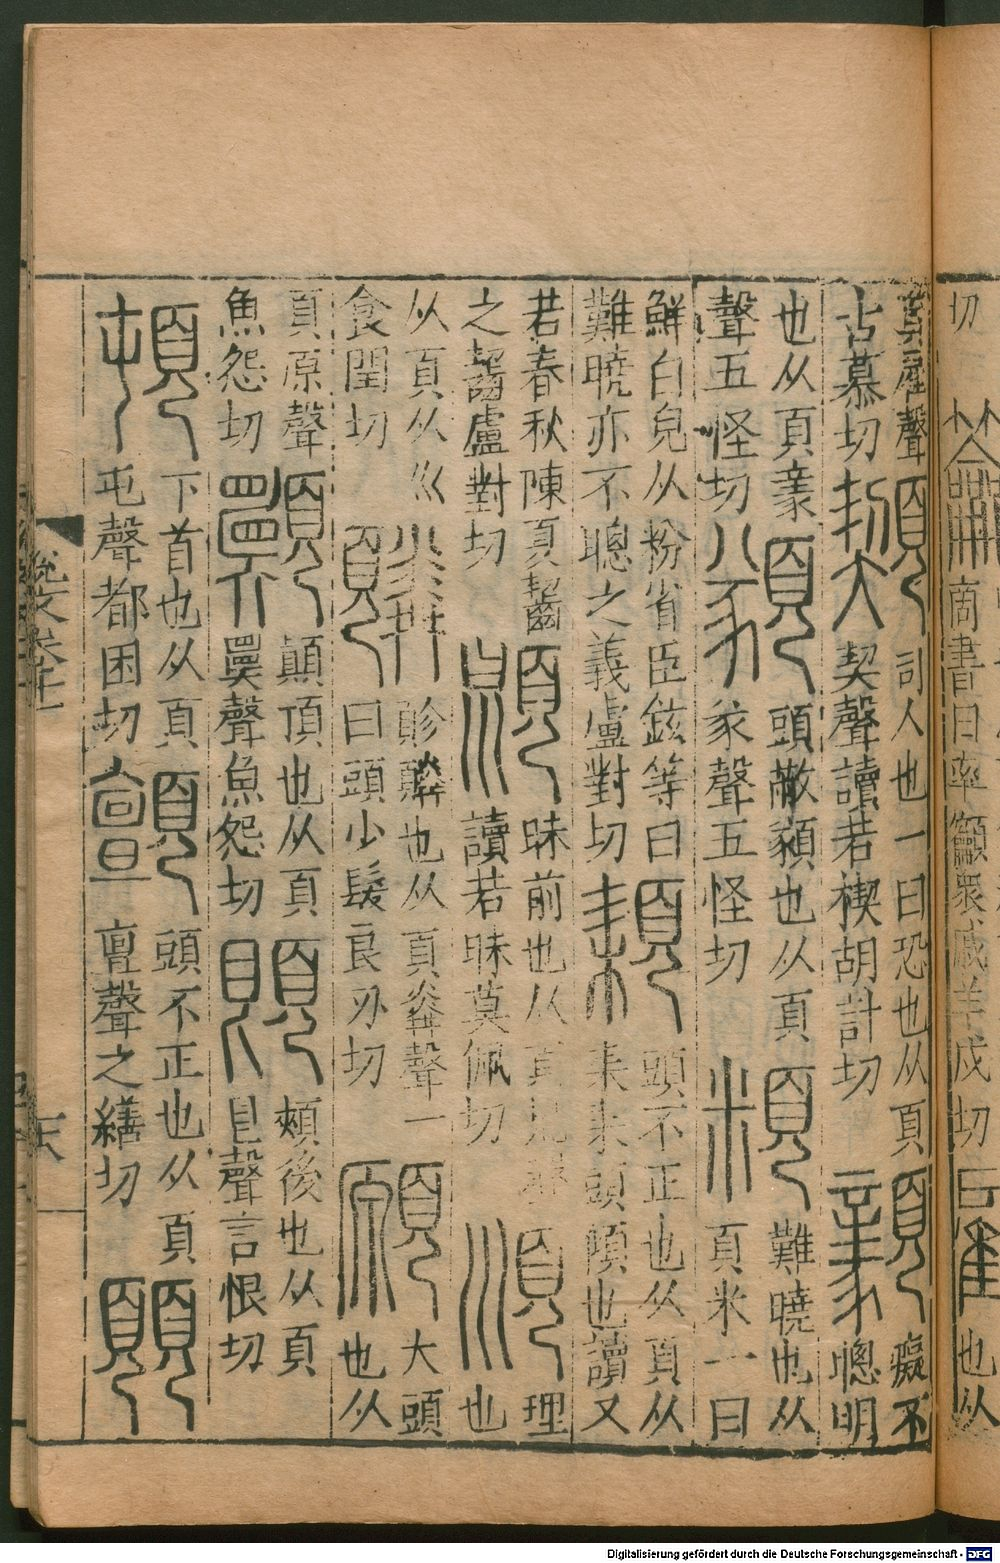 切
籲
商書曰率籲衆戚羊戍切
顧
也从
頁雇聲
古慕切
司人也一曰恐也从頁
契聲讀若禊胡計切
顡
癡不
聰明
也从頁豙
聲五怪切
頭蔽顡也从頁
豙聲五怪切
頪
難曉也从
頁米一曰
鮮白皃从粉省臣鉉等曰
難曉亦不聰之義盧對切
頛
頭不正也从頁从
耒耒頭傾也讀又
若春秋陳夏齧
之齧盧對切
昧前也从頁
讀若昧莫佩切
順
理
也
从頁从巛
食閏切
䫰
也从頁粦聲一
曰頭少髮良刃切
願
大頭
也从
頁原聲
魚怨切
顛頂也从頁
聲魚怨切
頰後也从頁
皀聲言恨切
頓
下首也从頁
屯聲都困切
顫
頭不正也从頁
亶聲之繕切
說文卷
Digitalisierung gefördert durch die Deutsche Forschungsgemeinschaft - DFG